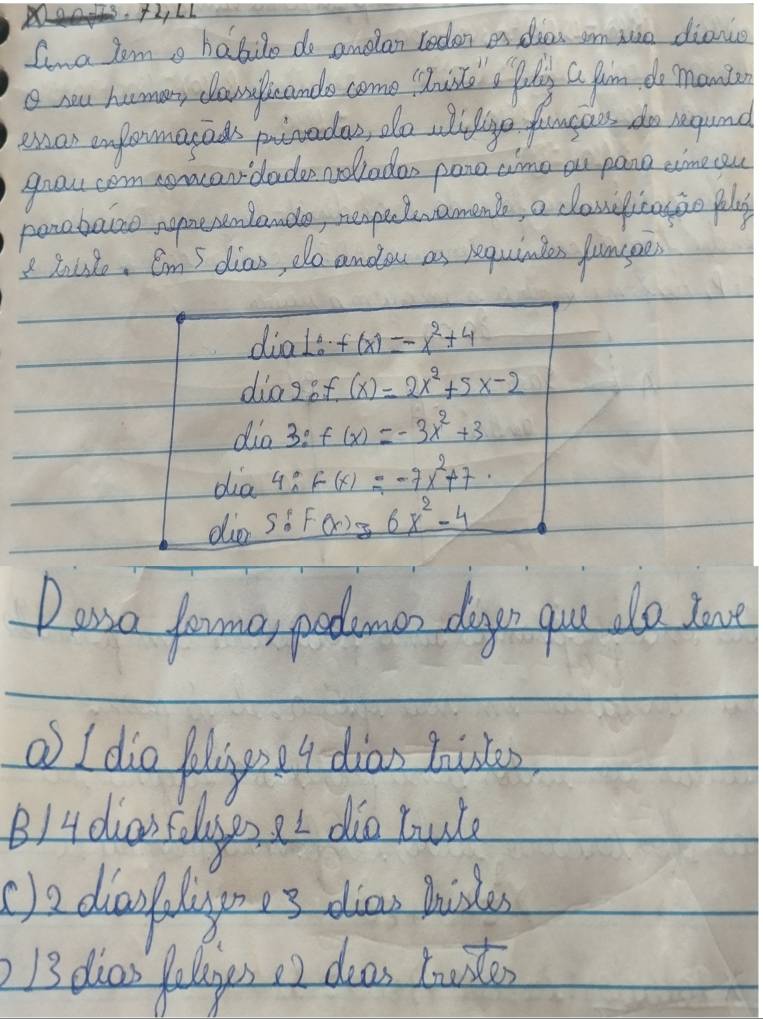 Lina tem o hábito de anotar todos os dias em sua diario
o seu humor, classificando como "triste" e "feliz" a fim de manter
essas enformaçãoes privadas, ela utiliza funções do segund
grau com concavidades voltadas para cima ou para
parabaixo representando, respectivamente, a classificação feliz
e triste. Em 5 dias, ela anotou as sequintes funções
dia 1: f(x) = -x²+4
dia 2: f(x) = 2x²+5x-2
dia 3: f(x) = -3x²+3
dia 4: F(x) = -7x²+7.
dia 5: F(x) = 6x²-4
Dessa forma, podemos dizer que ela teve
a) 1 dia felizes e 4 dias tristes.
B) 4 dias Felizes e 1 dia triste
C) 2 dias felizes e 3 dias tristes
D) 3 dias felizes e 2 deas trestes